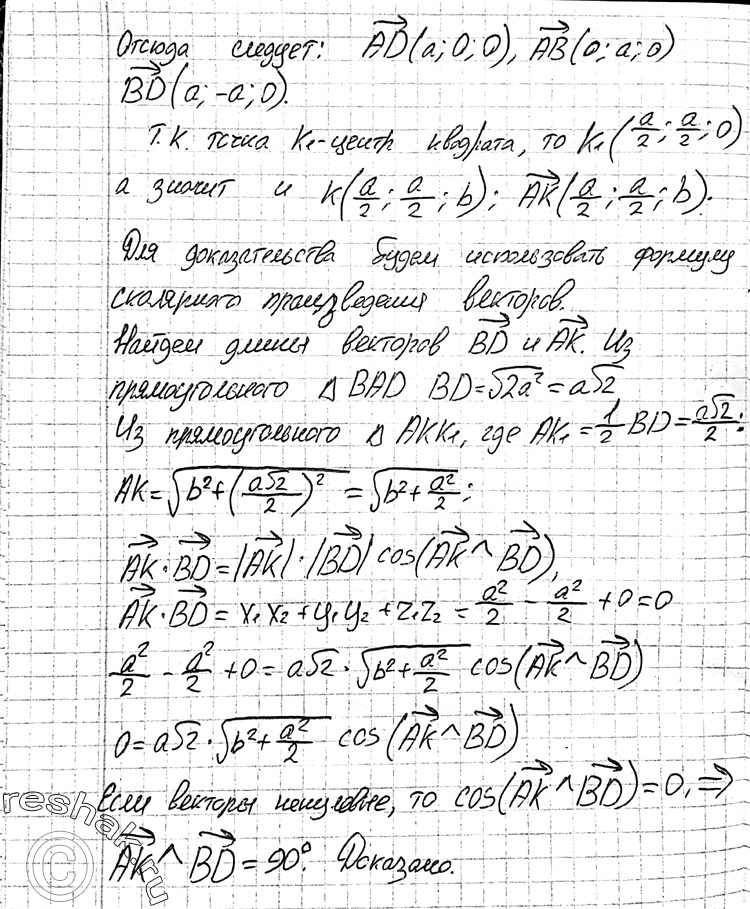 Отсюда следует: AD(a; 0; 0), AB(0; a; 0)
BD(a; -a; 0).
Т.к. точка K₁-центр квадрата, то K₁(a/2; a/2; 0)
а значит и K(a/2; a/2; b); AK(a/2; a/2; b).
Для доказательства будем использовать формулу
скалярного произведения векторов.
Найдем длины векторов BD и AK. Из
прямоугольного △ BAD BD=√2a² = a√2
Из прямоугольного △ AKK₁, где AK₁ = 1/2 BD = a√2/2:
AK=√(b²+(a√2/2)²) = √(b²+a²/2);
AK·BD=|AK|·|BD| cos(AK^BD),
AK·BD= x₁x₂+y₁y₂+z₁z₂ = a²/2 - a²/2 +0=0
a²/2 - a²/2 +0= a√2·√(b²+a²/2) cos(AK^BD)
0=a√2·√(b²+a²/2) cos(AK^BD)
Если векторы ненулевые, то cos(AK^BD)=0, ⇒
AK^BD=90°. Доказано.
©reshak.ru